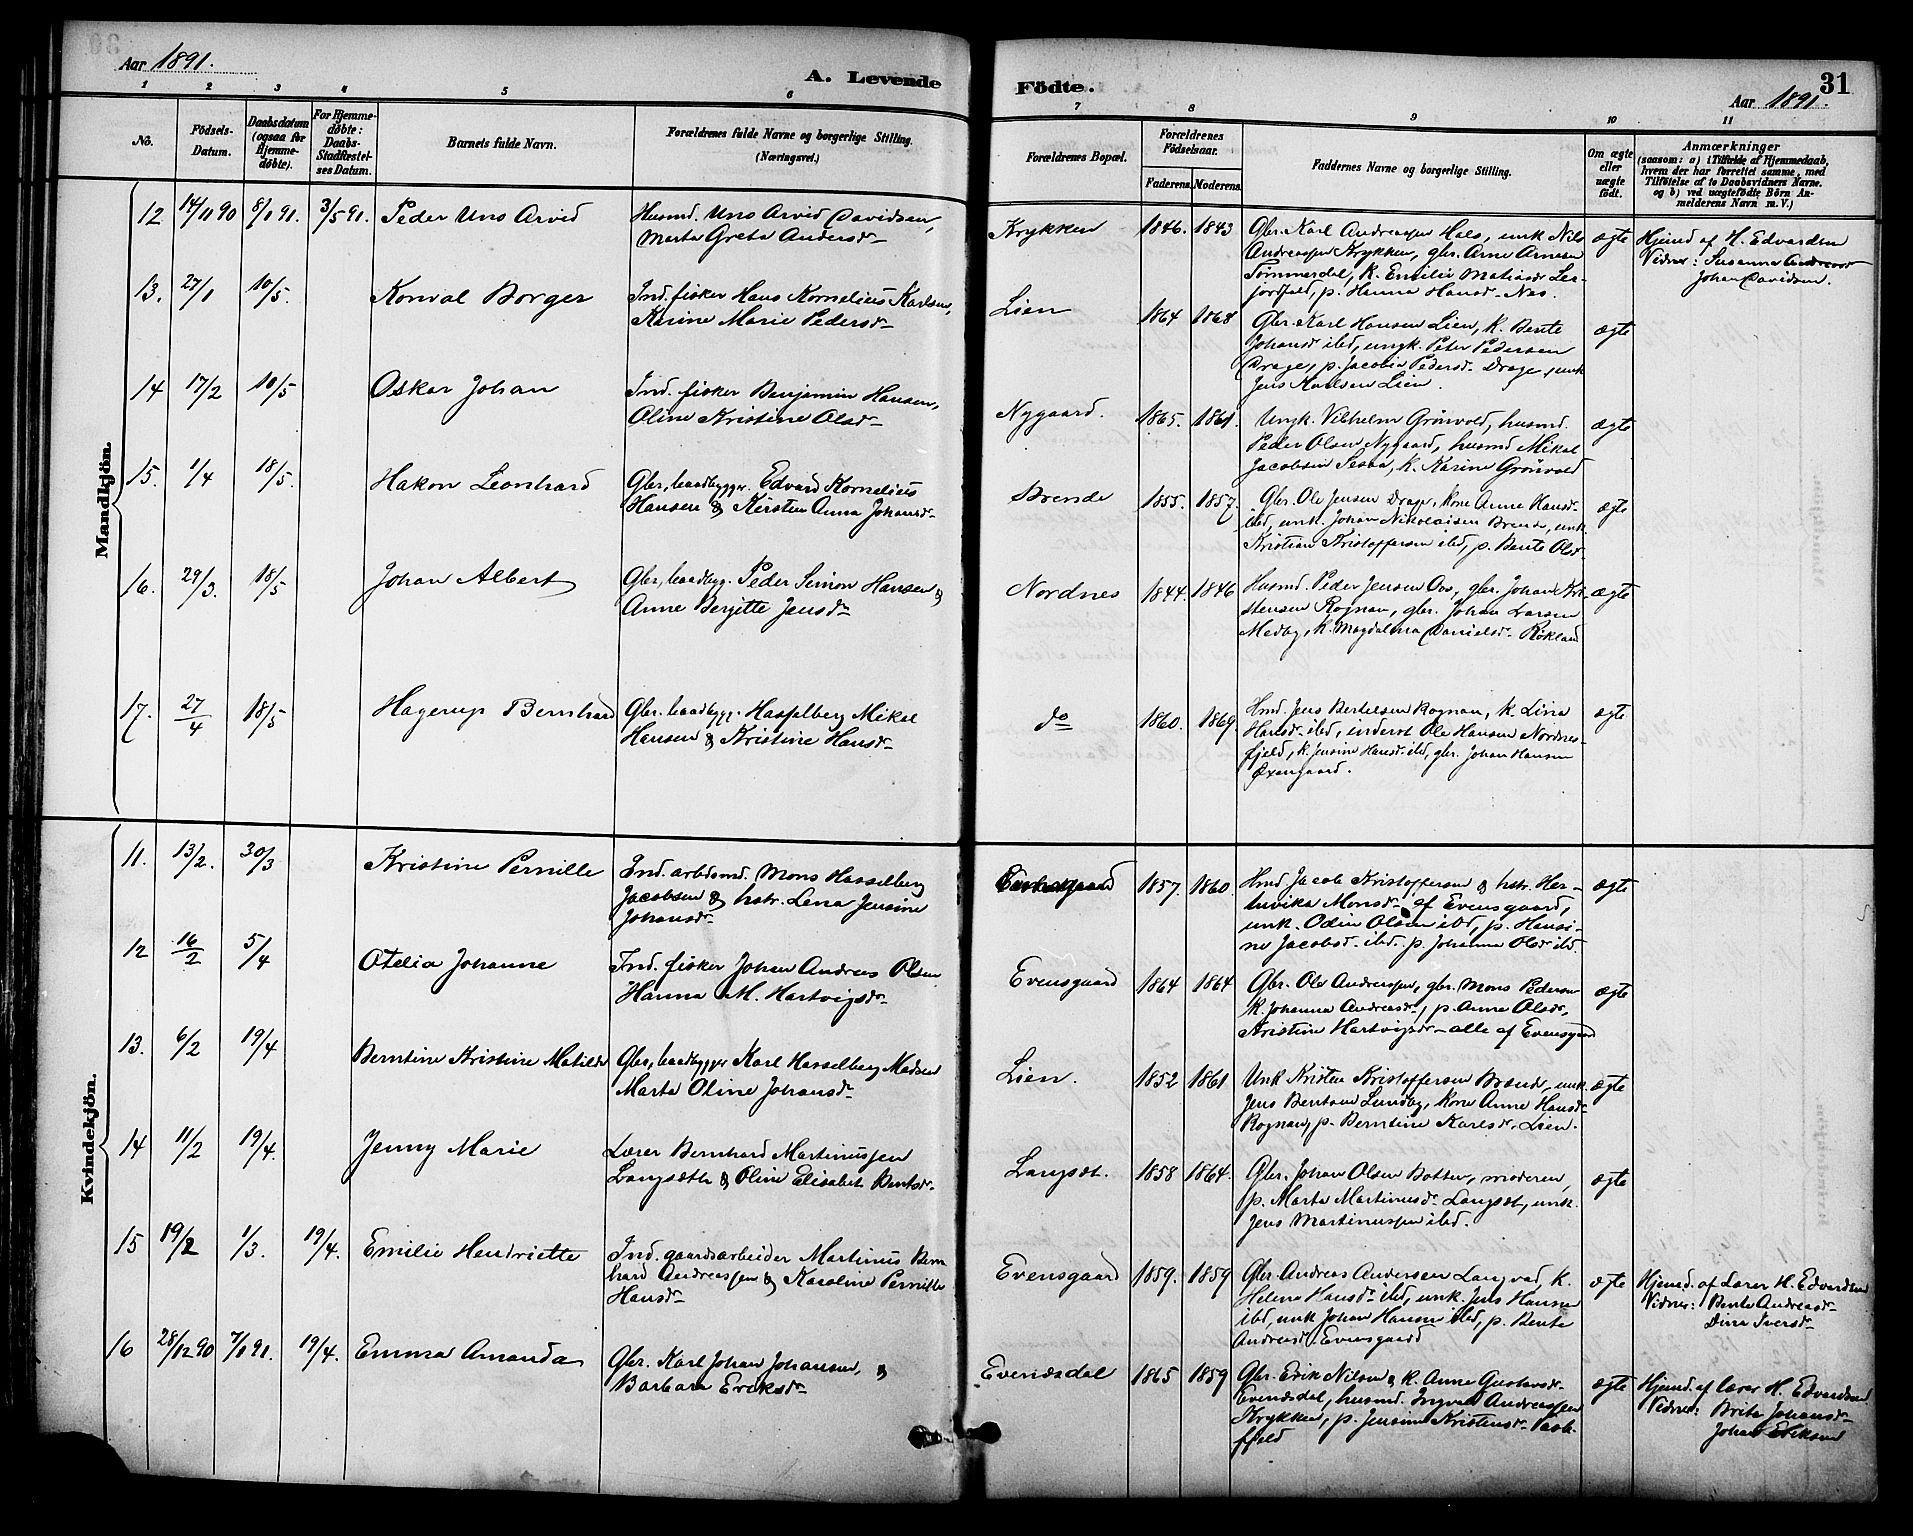 Aar 1891.
A. Levende
1 2 3 4 5 6
No.
Födsels-
Datum.
Daabsdatum
(ogsaa for
Hjemme-
døbte).
For Hjemme-
døbte:
Daabs-
Stadfæstel-
ses Datum.
Barnets fulde Navn.
Forældrenes fulde Navne og borgerlige Stilling.
(Næringsvei.)
Mandkjön.
12 14/11 90 8/1 91. 3/5 91. Peder Uno Arvid
Husmd. Uno Arvid Davidsen,
Marta Greta Andersd.
13. 27/1 10/5. Konval Borger
Ind. fisker Hans Kornelius Karlsen,
Karine Marie Pedersd.
14 17/2 10/5 Oskar Johan
Ind. fisker Benjamin Hansen,
Oline Kristine Olsd.
15. 1/4 18/5. Hakon Leonhard
Gbr, baadbygger Edvard Kornelius
Hansen & Kirsten Anna Johansd.
16. 29/3. 18/5 Johan Albert
Gbr, baadbyg. Peder Simon Hansen &
Anne Bergitte Jensd.
17. 27/4 18/5 Hagerup Bernhard
Gbr. baadbygg. Hasselberg Mikal
Hansen & Kristine Hansd.
Kvindekjön.
11. 13/2. 30/3 Kristine Pernille
Ind. arbdsmd. Mons Hasselberg
Jacobsen & hstr. Lena Jensine
Johansd.
12 16/2 5/4 Otelia Johanne
Ind. fisker Johan Andreas Olsen
Hanna M. Hartvigsd.
13. 6/2 19/4 Berntine Kristine Matilde
Gbr, baadbygger Karl Hasselberg Madsen
Marta Oline Johansd.
14 11/2 19/4. Jenny Marie
Lærer Bernhard Martinussen
Langsæth & Oline Elisabet Bentsd.
15 19/2 1/3. 19/4. Emilie Henriette
Ind. gaardsarbeider Martinus Bern
hard Andreassen & Karoline Pernille
Hansd.
16 28/12 90 7/1 91. 19/4. Emma Amanda
Gbr. Karl Johan Johansen, &
Barbara Eriksd.
Födte.
31
Aar 1891.
7 8 9 10 11
Forældrenes Bopæl.
Forældrenes
Födselsaar.
Faderens. Moderens.
Faddernes Navne og borgerlige Stilling.
Om ægte
eller
uægte
födt.
Anmærkninger
(saasom: a) i Tilfælde af Hjemmedaab,
hvem der har forrettet samme, med
Tilföielse af to Daabsvidners Navne.
og b) ved uægtefödte Börn An-
melderens Navn m. V.)
Krykken 1846. 1843
Gbr. Karl Andreassen Hals, unk Nils
Andreassen Krykken, gbr. Arne Arnesen
Tømmerdal, k. Emilie Matiasd. Ler-
jordfald, p. Hanna Hansd. Nes.
ægte
Hjemd af H. Edvardsen
Vidner: Susanna
Johan Davidsen.
Lien 1864 1868
Gbr. Karl Hansen Lien, k. Bente
Johansd ibd, ungk. Peter Pedersen
Drage, p. Jacobia Pedersd. Drage, unk
Jens Karlsen Lien.
ægte
Nygaard. 1865. 1861.
Ungk. Vilhelm Grönvold, husmd.
Peder Olsen Nygaard, husmd Mikal
Jacobsen, k. Karine Grönvold
ægte
Brende 1855. 1857.
Gbr. Ole Jensen Drage, kone Anne Hansd.
ibd, unk. Johan Nikolaisen Brende, unk
Kristian Kristoffersen ibd, p. Bente Olsd
ægte
Nordnes 1844. 1846
Husmd. Peder Jensen Ovs, gbr. Johan Kri-
stensen Rognan, gbr. Johan Larsen
Medby, k. Magdalena Danielsd. Røkland
ægte
do 1860. 1869.
Hmd. Jens Bertelsen Rognan, k. Lina
Hansd. ibd, inderst Ole Hansen Nordnes-
fjeld, k. Jensine Hansd. ibd, gbr. Johan Hansen
Øxengaard.
ægte
1857. 1860.
Hmd. Jacob Kristoffersen & hstr. Her-
luvika Monsd. af Evensgaard,
unk. Odin Olsen ibd, p. Hansi-
ne Jacobsd. ibd. p. Johanna Olsd ibd.
ægte
Evensgaard 1864 1864
Gbr. Ole Andreassen, gbr. Mons Pedersen
k. Johanna Andreasd., p. Anne Olsd,
Kristine Hartvigsd. alle af Evensgaard
ægte
Lien. 1852 1861
Unk Kristen Kristoffersen Brende, unk.
Jens Bentsen Lundby, kone Anne Hansd.
Rognan, p. Berntine Karlsd. Lien.
ægte
Langsæt. 1858 1864.
Gbr. Johan Olsen Botten, moderen,
p. Marta Martinusd. Langsæt, unk.
Jens Martinussen ibd.
ægte
Evensgaard 1859. 1859
Gbr. Andreas Andersen Langvad, k.
Helena Hansd. ibd, unk. Jens Hansen
ibd, unk Johan Hansen ibd, p. Bente
Andreasd. Evensgaard
ægte
Hjemd. af Lærer H. Edvardsen
Vidner: Bente Andreasd.
Dina Iversd.
Evendsdal 1865 1859
Gbr. Erik Nilsen & k. Anne Gustavsd.
Evendsdal, husmd. Ingvald Andreassen
Krykken, p. Jensine Kristensd.
fjeld
ægte
Hjemd. af lærer H. Edvardsen
Vidner: Brita Johansd.
Johan Eriksen